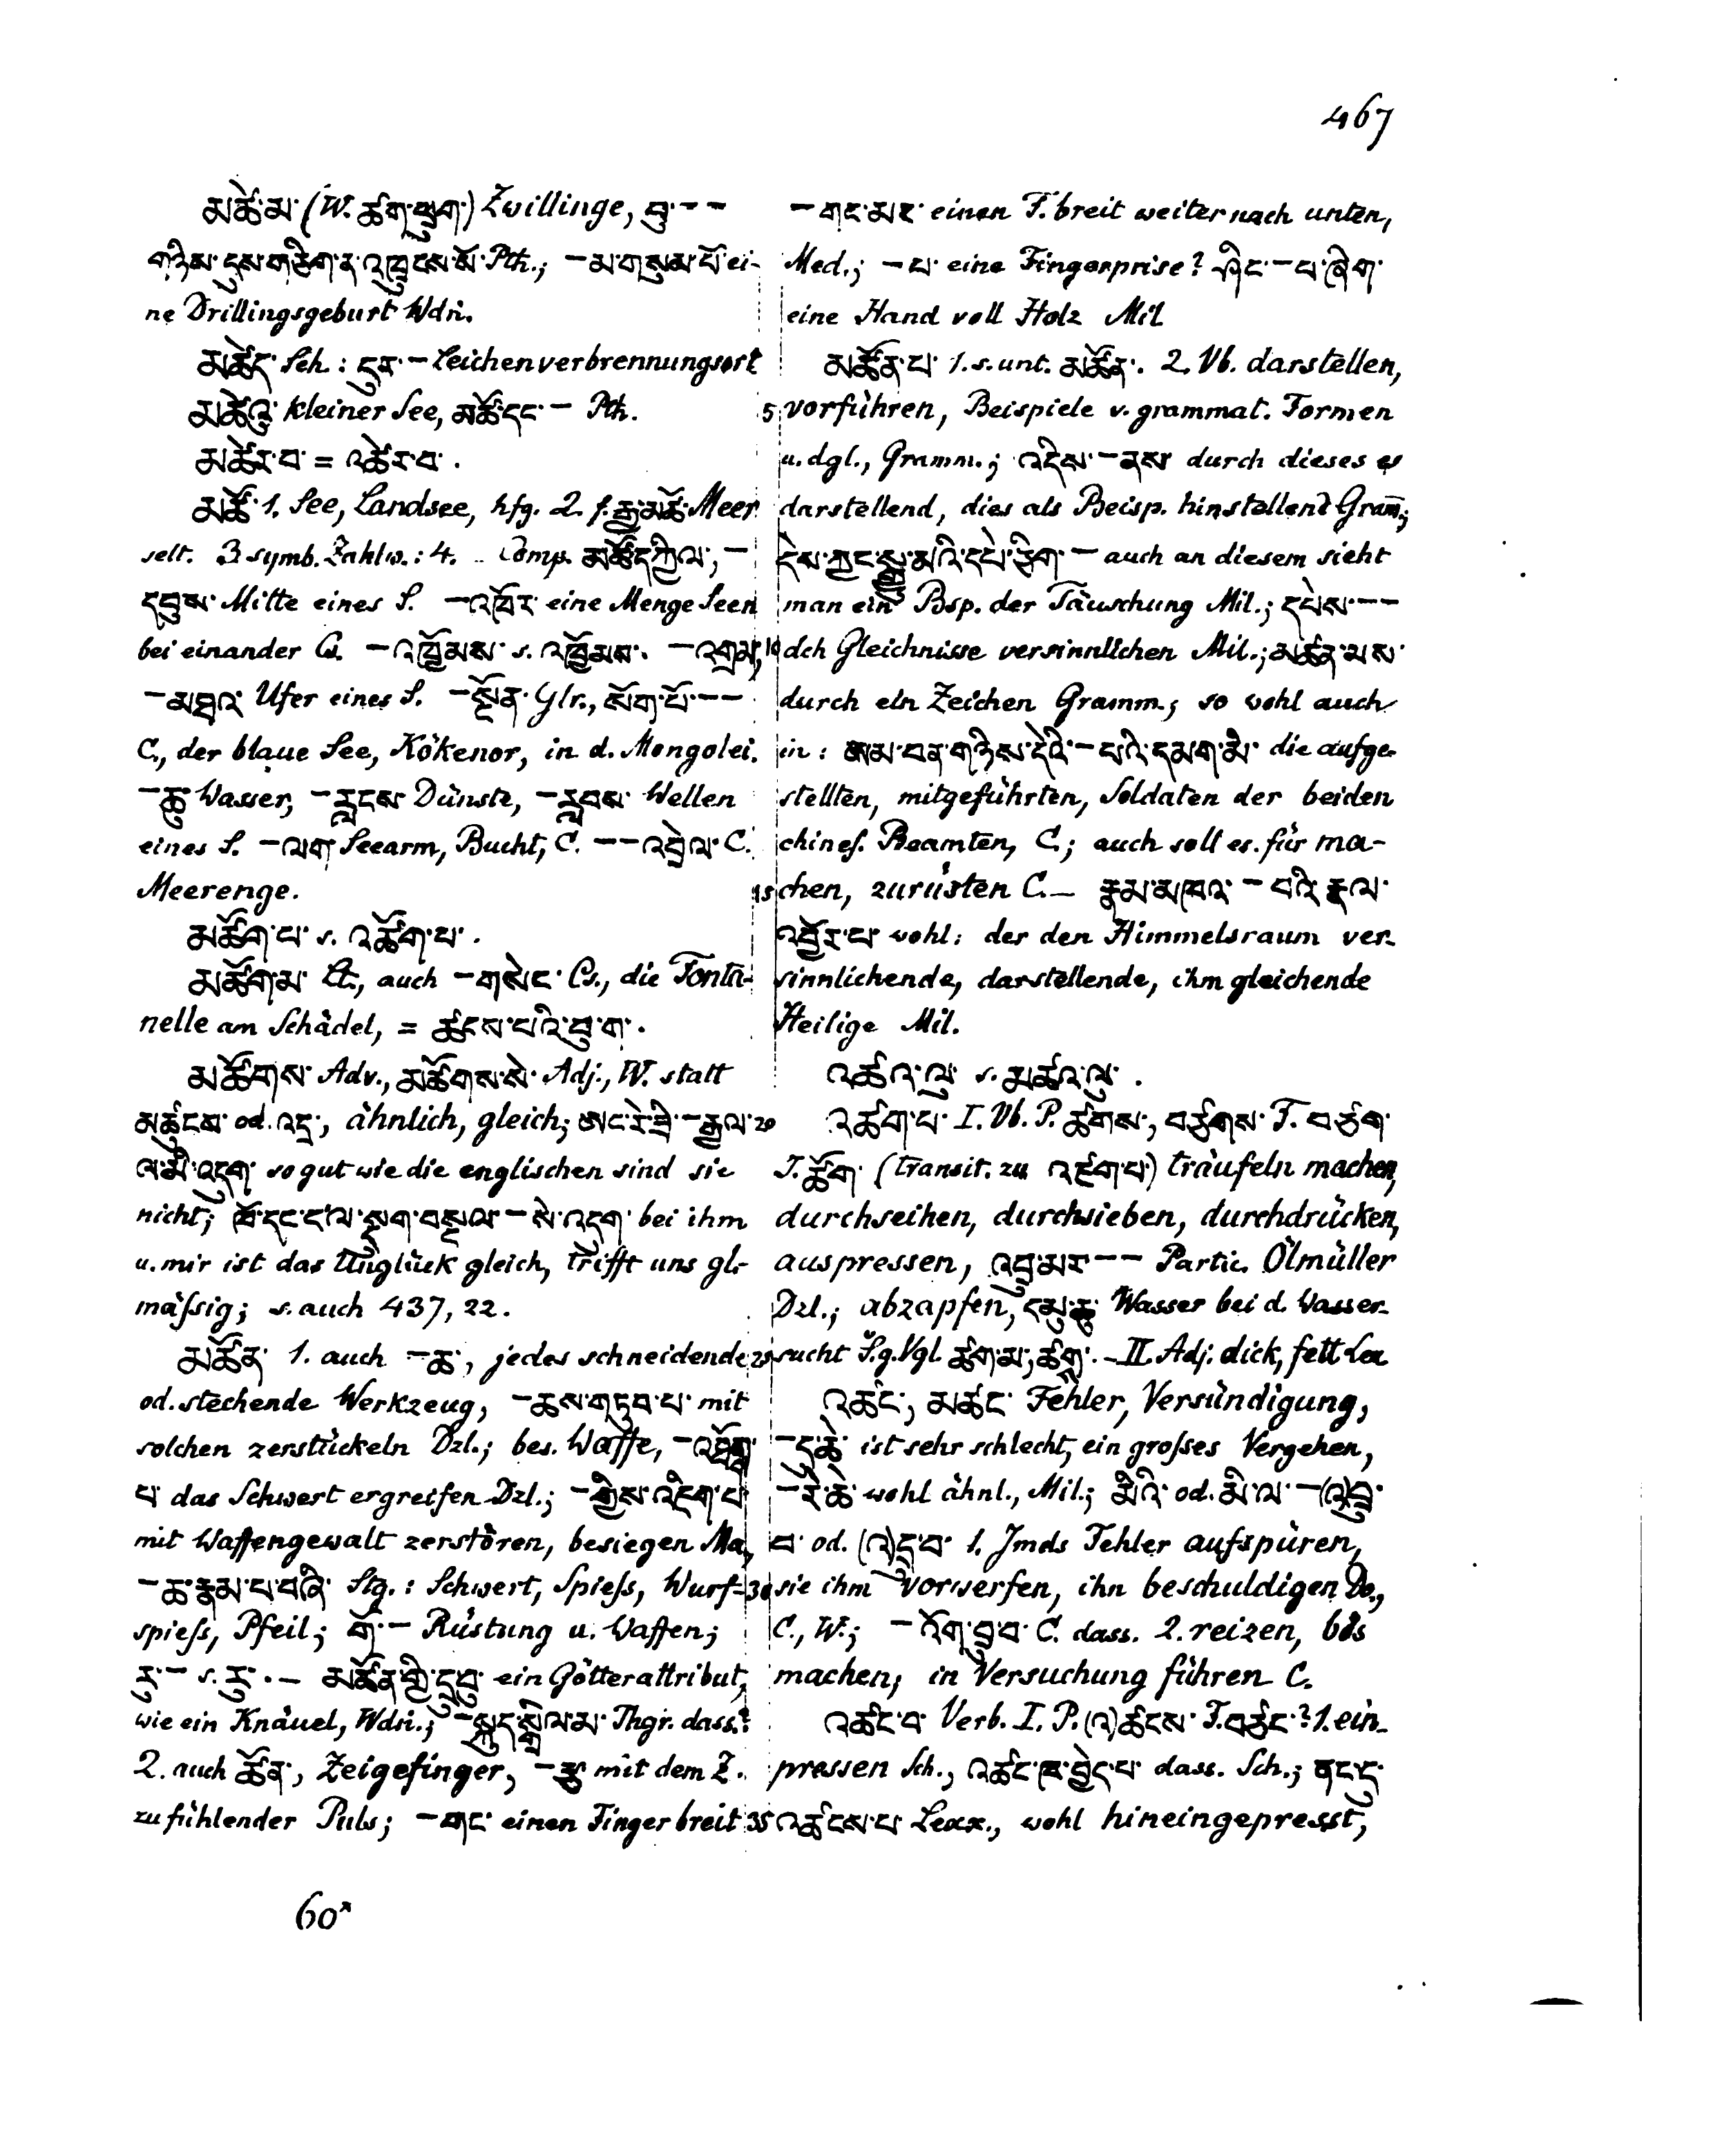 467
མཚེ་མ་ (W. ཚག་ཕྲུག་) Zwillinge, བུ་ – –
གཉིས་དུས་གཅིག་ན་འཁྲུངས་སོ་ Pth.; – མ་གསུམ་པོ་ ei-
ne Drillingsgeburt Wdn̄.
མཚེད་ Sch.: དུར་ – Leichenverbrennungsort
མཚེའུ་ kleiner See, མཚོ་དང་ – Pth.
མཚེར་བ་ = འཚེར་བ་.
མཚོ་ 1. See, Landsee, hfg. 2. f. རྒྱ་མཚོ་ Meer
selt. 3 symb. Zahlw.: 4. – Comp. མཚོ་དཀྱིལ་, –
དབུས་ Mitte eines S. – འཁོར་ eine Menge Seen
bei einander C. – འཁྱོམས་ s. འཁྱོམས་. – འགྲམ་,
– མཐའ་ Ufer eines S. – སྔོན་ Glr., སོག་པོ་ – –
C., der blaue See, Kökenor, in d. Mongolei.
– ཆུ་ Wasser, – རླངས་ Dünste, – རླབས་ Wellen
eines S. – ལག་ Seearm, Bucht, C. – – འབྲེལ་ C.
Meerenge.
མཚོག་པ་ s. འཚོག་པ་.
མཚོག་མ་ Lt., auch – གསེང་ Cs., die Fonta-
nelle am Schädel, = ཚངས་པའི་བུ་ག་.
མཚོགས་ Adv., མཚོགས་སེ་ Adj., W. statt
མཚུངས་ od. འདྲ་, ähnlich, gleich; ཨང་རེ་ཟི་ – རྒྱལ་
ལ་མི་འདུག་ so gut wie die englischen sind sie
nicht; ཁོ་དང་ང་ལ་སྡུག་བསྔལ་ – སེ་འདུག་ bei ihm
u. mir ist das Unglück gleich, trifft uns gl.-
mäſsig; s. auch 437, 22.
མཚོན་ 1. auch – ཆ་, jedes schneidende
od. stechende Werkzeug, – ཆས་གཏུབ་པ་ mit
solchen zerstückeln Dzl.; bes. Waffe, – འཐོག་
པ་ das Schwert ergreifen Dzl.; – གྱིས་འདིག་པ་
mit Waffengewalt zerstören, besiegen Ma,
– ཆ་རྣམ་པ་བཞི་ Stg.: Schwert, Spieſs, Wurf-
spieſs, Pfeil; གོ་ – Rüstung u. Waffen;
རུ་ – s. རུ་. – མཚོན་གྱི་དྲུབུ་ ein Götterattribut,
wie ein Knäuel, Wdn̄.; – སྐུད་སྒྲིལ་མ་ Thgr. dass.?
2. auch ཚོན་, Zeigefinger, – རྩ་ mit dem Z.
zu fühlender Puls; – གང་ einen Finger breit
– གང་མར་ einen F. breit weiter nach unten,
Med.; – པ་ eine Fingerprise? ཤིང་ – པ་ཞིག་
eine Hand voll Holz Mil
མཚོན་པ་ 1. s. unt. མཚོན་. 2. Vb. darstellen,
5 vorführen, Beispiele v. grammat. Formen
u. dgl., Gramm.; འདིས་ – ནས་ durch dieses es
darstellend, dies als Beisp. hinstellend Gram̄;
དེས་ཀྱང་སྒྱུ་མའི་དཔེ་ཅིག་ – auch an diesem sieht
man ein Bsp. der Täuschung Mil.; དཔེས་ – –
10 dch Gleichnisse versinnlichen Mil.; མཚན་མས་
durch ein Zeichen Gramm.; so wohl auch
in: ཨམ་བན་གཉིས་དེའི་ – པའི་དམག་མི་ die aufge-
stellten, mitgeführten, Soldaten der beiden
chineſ. Beamten, C.; auch soll es. für ma-
15 chen, zurüsten C. – རྣམ་མཁའ་ – བའི་རྣལ་
འབྱོར་པ་ wohl: der den Himmelsraum ver-
sinnlichende, darstellende, ihm gleichende
Heilige Mil.
འཚའ་ལུ་ s. མཚའ་ལུ་.
20 འཚག་པ་ I. Vb. P. ཚགས་, བཙགས་ F. བཙག་
J. ཚོག་ (transit. zu འཛག་པ་) träufeln machen,
durchseihen, durchsieben, durchdrücken,
auspressen, འབྲུ་མར་ – – Partic. Ölmüller
Dzl.; abzapfen, དམུ་ཆུ་ Wasser bei d. Wasser-
25 sucht S.g. Vgl. ཚག་མ་, ཚགས་. – II. Adj. dick, fett Lex
འཚང་, མཚང་ Fehler, Versündigung,
– དུ་ཆེ་ ist sehr schlecht, ein groſses Vergehen,
– རེ་ཆེ་ wohl ähnl., Mil.; མིའི་ od. མི་ལ་ – (འ)བྲུ་
བ་ od. (འ)དྲུ་བ་ 1. Jmds Fehler aufspüren,
30 sie ihm vorwerfen, ihn beschuldigen Do.,
C., W.; – འོག་བྲུ་བ་ C. dass. 2. reizen, bös
machen; in Versuchung führen C.
འཚང་བ་ Verb. I. P. (འ)ཚངས་ F. བཙང་? 1. ein-
pressen Sch., འཚང་ཁ་བྱེད་པ་ dass. Sch.; ནང་དུ་
35 འཚངས་པ་ Lexx., wohl hineingepresst,
60*